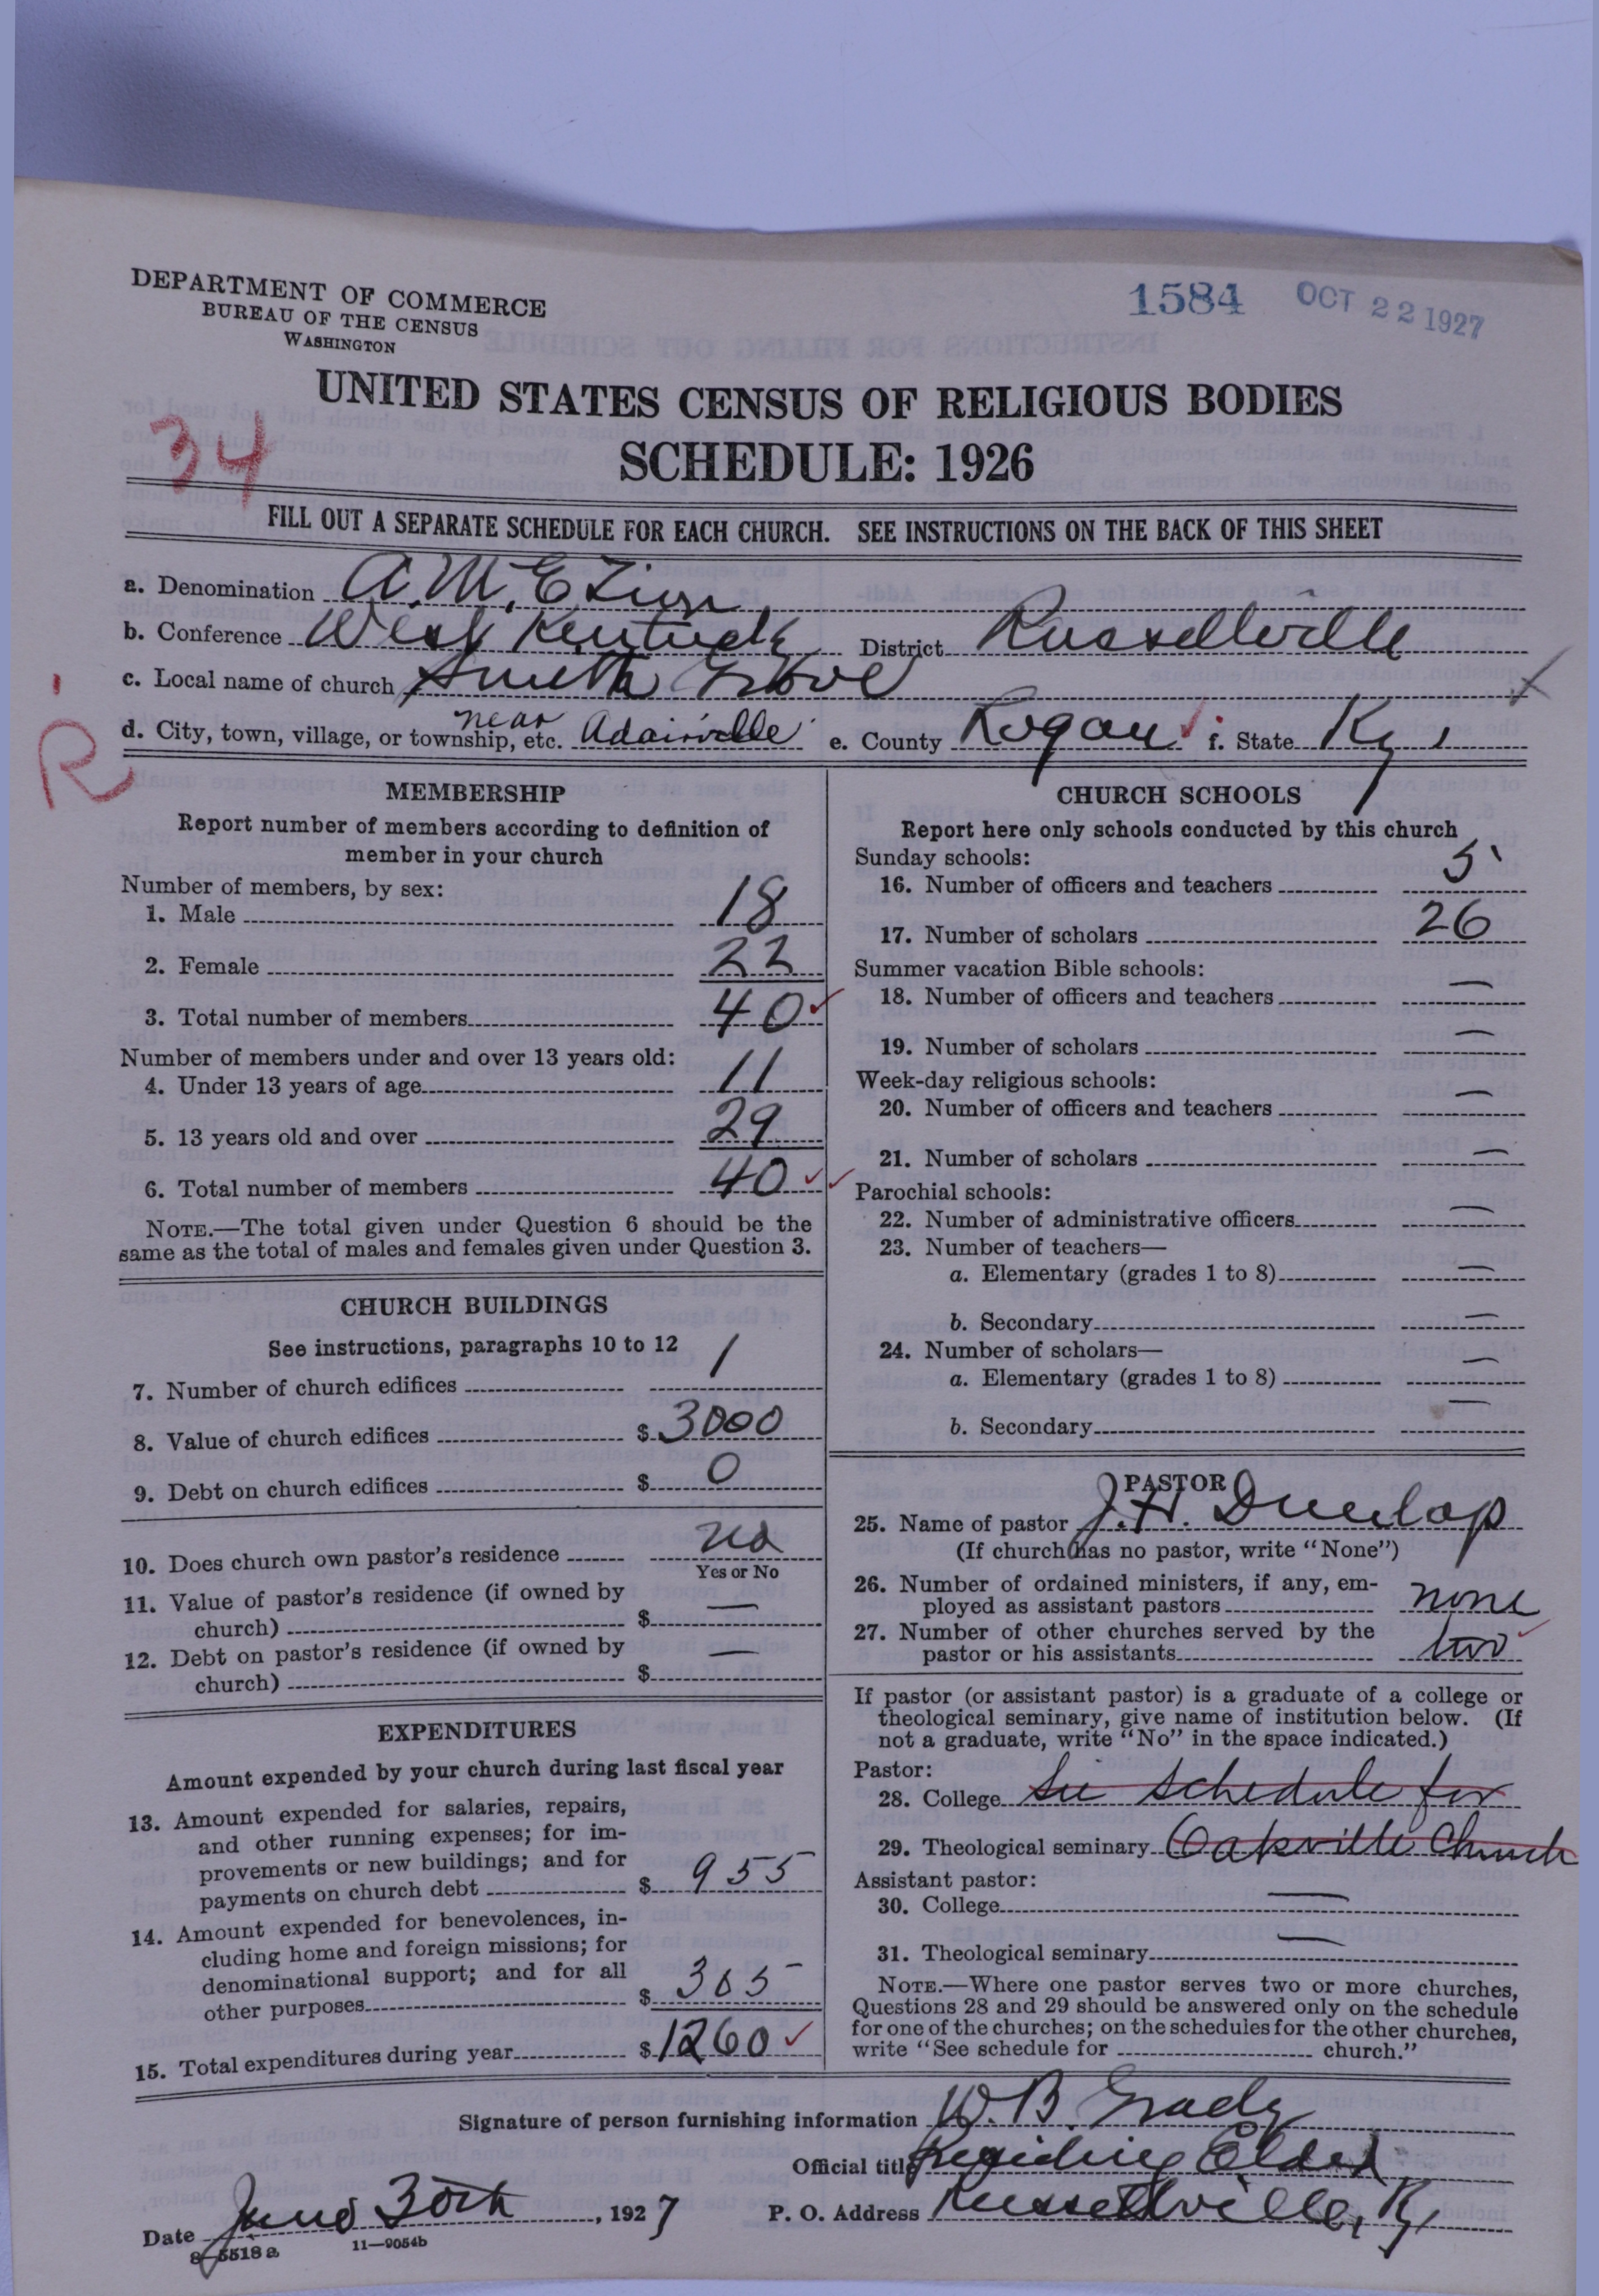 DEPARTMENT OF COMMERCE
BUREAU OF THE CENSUS
WASHINGTON
1584 OCT 22 1927
UNITED STATES CENSUS OF RELIGIOUS BODIES
SCHEDULE: 1926
34
FILL OUT A SEPARATE SCHEDULE FOR EACH CHURCH. SEE INSTRUCTIONS ON THE BACK OF THIS SHEET
a. Denomination A.M.E Zion
b. Conference West Kentucky District Russellville
c. Local name of church Smith Grove
d. City, town, village, or township, etc. near Adairville e. County Logan f. State Ky,
R
MEMBERSHIP
Report number of members according to definition of
member in your church
Number of members, by sex:
1. Male 18
2. Female 22
3. Total number of members 40
Number of members under and over 13 years old:
4. Under 13 years of age 11
5. 13 years old and over 29
6. Total number of members 40
NOTE.—The total given under Question 6 should be the
same as the total of males and females given under Question 3.
CHURCH BUILDINGS
See instructions, paragraphs 10 to 12
7. Number of church edifices 1
8. Value of church edifices $ 3000
9. Debt on church edifices $ 0
10. Does church own pastor's residence no
Yes or No
11. Value of pastor's residence (if owned by
church) $ —
12. Debt on pastor's residence (if owned by
church) $ —
EXPENDITURES
Amount expended by your church during last fiscal year
13. Amount expended for salaries, repairs,
and other running expenses; for im-
provements or new buildings; and for
payments on church debt $ 955
14. Amount expended for benevolences, in-
cluding home and foreign missions; for
denominational support; and for all
other purposes $ 305
15. Total expenditures during year $ 1260
CHURCH SCHOOLS
Report here only schools conducted by this church
Sunday schools:
16. Number of officers and teachers 5
17. Number of scholars 26
Summer vacation Bible schools:
18. Number of officers and teachers —
19. Number of scholars —
Week-day religious schools:
20. Number of officers and teachers —
21. Number of scholars —
Parochial schools:
22. Number of administrative officers —
23. Number of teachers—
a. Elementary (grades 1 to 8) —
b. Secondary —
24. Number of scholars—
a. Elementary (grades 1 to 8) —
b. Secondary —
PASTOR
25. Name of pastor J.H. Dunlap
(If church has no pastor, write "None")
26. Number of ordained ministers, if any, em-
ployed as assistant pastors none
27. Number of other churches served by the
pastor or his assistants two
If pastor (or assistant pastor) is a graduate of a college or
theological seminary, give name of institution below. (If
not a graduate, write "No" in the space indicated.)
Pastor:
28. College See schedule for
29. Theological seminary Oakville Church
Assistant pastor:
30. College —
31. Theological seminary —
NOTE.—Where one pastor serves two or more churches,
Questions 28 and 29 should be answered only on the schedule
for one of the churches; on the schedules for the other churches,
write "See schedule for church."
Signature of person furnishing information W. B. Grady
Official title Presiding Elder
Date June 30th, 1927 P. O. Address Russellville, Ky
8—5518 a 11—9054b